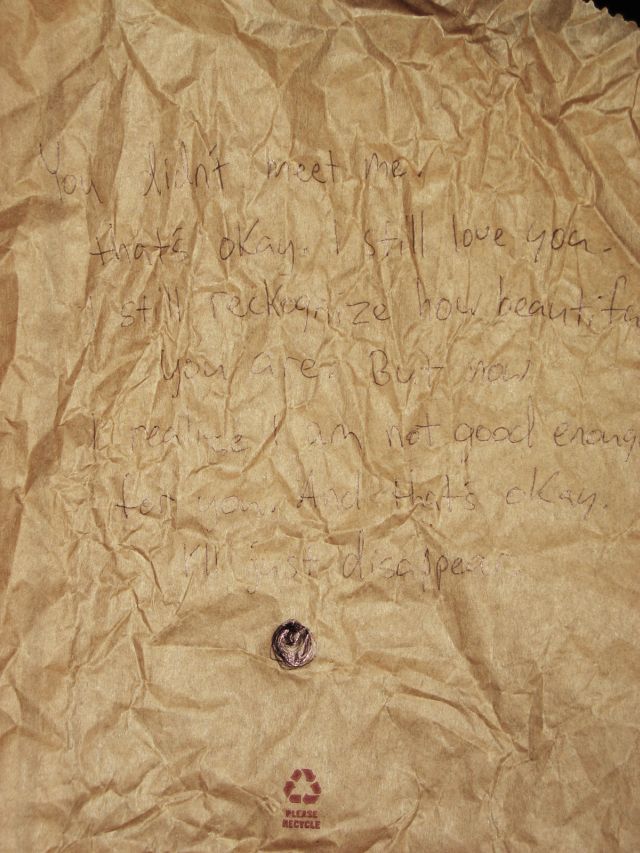 You didn't meet me.
that's okay. I still love you.
I still reckognize how beautifu
you are. But now
I realize I am not good enoug
for you. And that's okay.
I'll just disappear.
PLEASE
RECYCLE